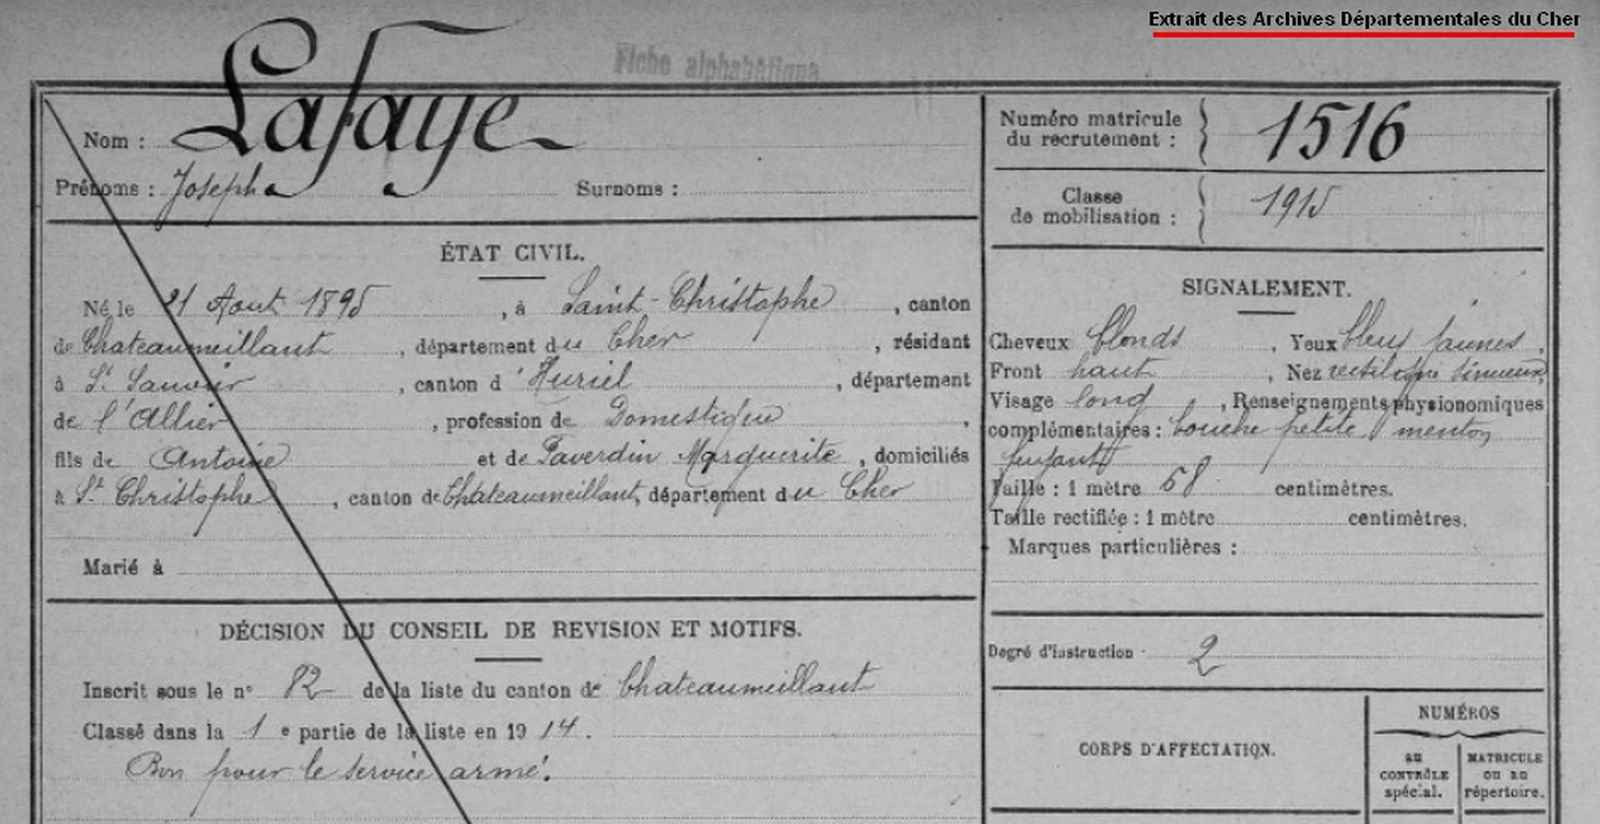 Extrait des Archives Départementales du Cher
Fiche alphabétique
Nom : Lafaye
Prénoms : Joseph Surnoms :
ÉTAT CIVIL.
Né le 21 Aout 1895, à Saint-Christophe, canton
de Chateaumeillant, département du Cher, résidant
à St Sauvier, canton d'Huriel, département
de l'Allier, profession de Domestique,
fils de Antoine et de Paverdin Marguerite, domiciliés
à St Christophe, canton de Chateaumeillant, département du Cher
Marié à
DÉCISION DU CONSEIL DE REVISION ET MOTIFS.
Inscrit sous le n° 82 de la liste du canton de Chateaumeillant
Classé dans la 1e partie de la liste en 1914.
Bon pour le service armé.
Numéro matricule
du recrutement : 1516
Classe
de mobilisation : 1915
SIGNALEMENT.
Cheveux blonds, Yeux bleus jaunes,
Front haut, Nez rectiligne sinueux,
Visage long, Renseignements physionomiques
complémentaires : bouche petite, menton
fuyant
Taille : 1 mètre 58 centimètres.
Taille rectifiée : 1 mètre centimètres.
Marques particulières :
Degré d'instruction 2
CORPS D'AFFECTATION.
NUMÉROS
au
CONTRÔLE
spécial.
MATRICULE
ou au
répertoire.